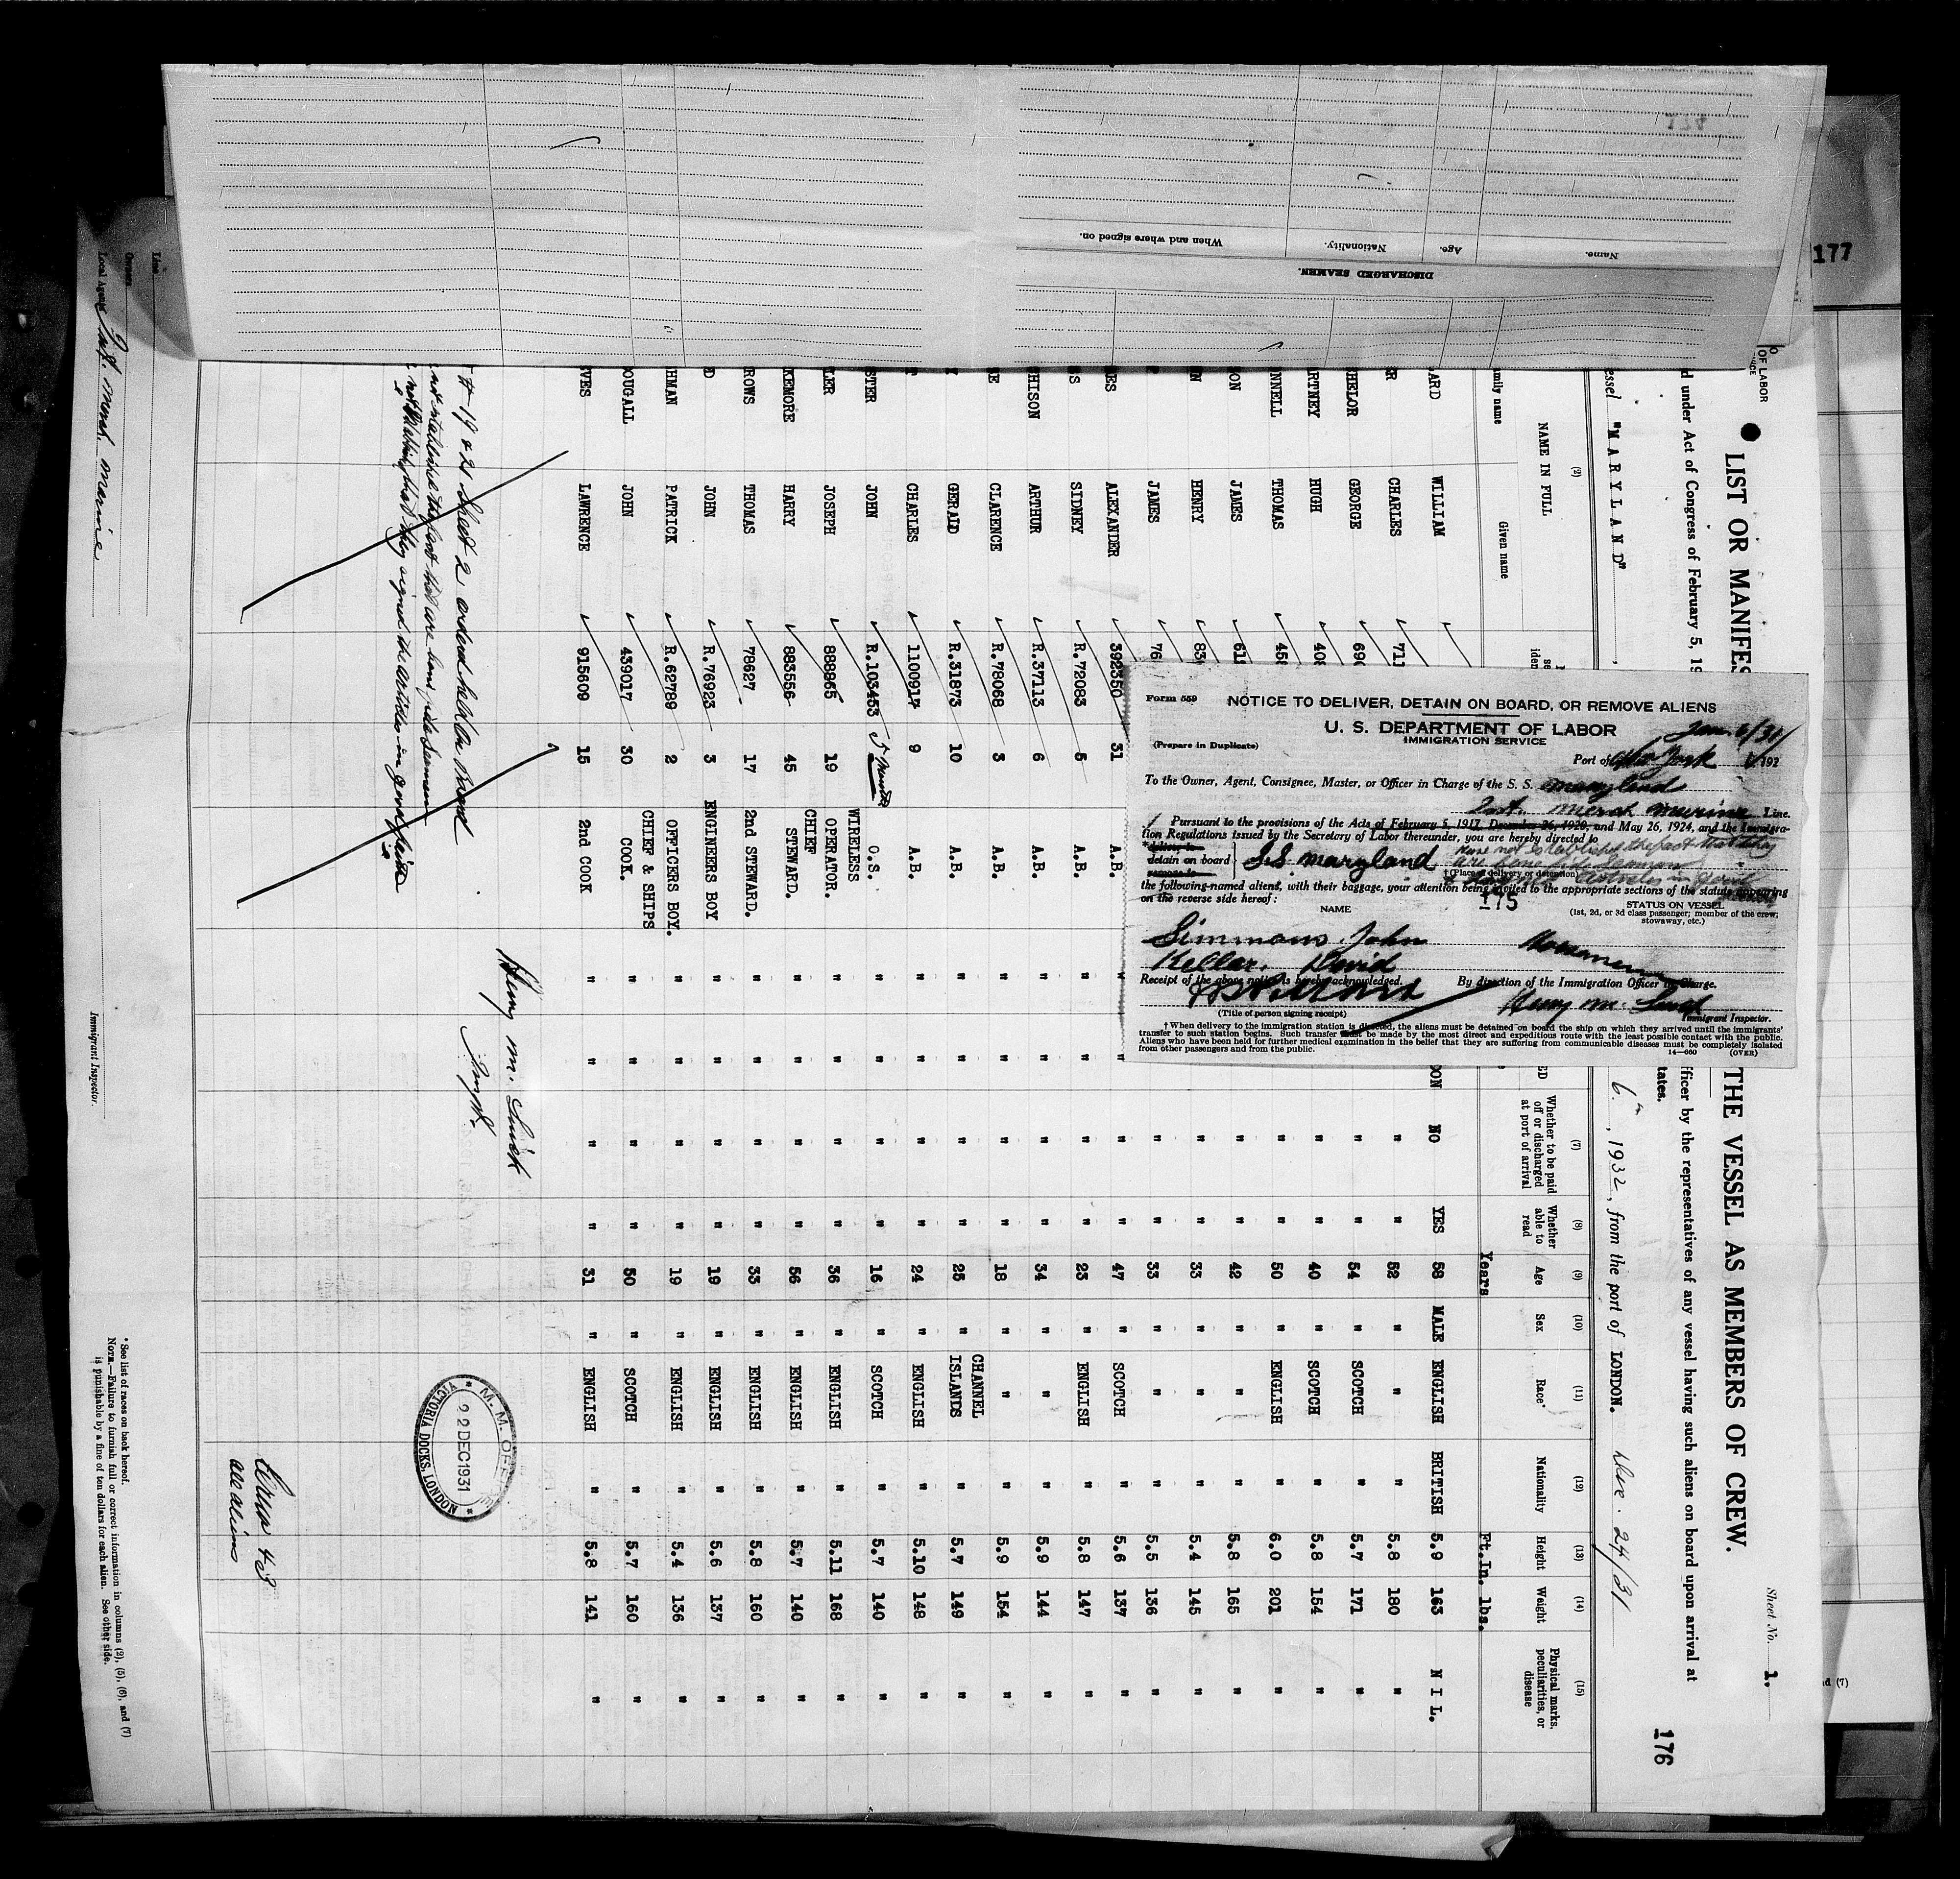 177
174
Name.
Age.
Nationality.
When and where signed on.
DISCHARGED SEAMEN.
OF LABOR
Sheet No. 1.
176
LIST OR MANIFES
THE VESSEL AS MEMBERS OF CREW.
d under Act of Congress of February 5, 19
fficer by the representatives of any vessel having such aliens on board upon arrival at
tates.
essel "MARYLAND"
6th, 1932, from the port of LONDON. Dec. 24/31
(2) (7) (8) (9) (10) (11) (12) (13) (14) (15)
NAME IN FULL
amily name Given name
Whether to be paid off or discharged at port of arrival
Whether able to read
Age
Sex
Race*
Nationality
Height
Weight
Physical marks, peculiarities, or disease
Years Ft.In. lbs.
ARD WILLIAM DON NO YES 58 MALE ENGLISH BRITISH 5.9 163 N I L.
ER CHARLES 711 " " 52 " " " 5.8 180 "
HELOR GEORGE 690 " " 54 " SCOTCH " 5.7 171 "
ARTNEY HUGH 408 " " 40 " SCOTCH " 5.8 154 "
NNELL THOMAS 458 " " 50 " ENGLISH " 6.0 201 "
ON JAMES 611 " " 42 " " " 5.8 165 "
N HENRY 83 " " 33 " " " 5.4 145 "
JAMES 76 " " 33 " " " 5.5 136 "
ES ALEXANDER 392350 31 A.B. " " " " 47 " SCOTCH " 5.6 137 "
S SIDNEY R.72083 5 A.B. " " " " 23 " ENGLISH " 5.8 147 "
HISON ARTHUR R.37113 6 A.B. " " " " 34 " " " 5.9 144 "
SE CLARENCE R.78068 3 A.B. " " " " 18 " " " 5.9 154 "
GERALD R.31873 10 A.B. " " " " 25 " CHANNEL ISLANDS " 5.7 149 "
T CHARLES 1100917 9 A.B. " " " " 24 " ENGLISH " 5.10 148 "
STER JOHN R.103453 5 months O.S. " " " " 16 " SCOTCH " 5.7 140 "
LER JOSEPH 888865 19 WIRELESS OPERATOR. " " " " 36 " ENGLISH " 5.11 168 "
KEMORE HARRY 883556 45 CHIEF STEWARD. " " " " 56 " ENGLISH " 5.7 140 "
ROWS THOMAS 78627 17 2nd STEWARD. " " " " 33 " ENGLISH " 5.8 160 "
D JOHN R.76923 3 ENGINEERS BOY " " " " 19 " ENGLISH " 5.6 137 "
HMAN PATRICK R.62789 2 OFFICERS BOY. " " " " 19 " ENGLISH " 5.4 136 "
OUGALL JOHN 439017 30 CHIEF & SHIPS COOK. " " " " 50 " SCOTCH " 5.7 160 "
VES LAWRENCE 915609 15 2nd COOK " " " " 31 " ENGLISH " 5.8 141 "
# 19 & 21 Sheet 2 ordered held on board
not established the fact that are bona fide Seamen
they signed the articles in good faith
Henry M. Smith
Insp.
M. M. OFFICE
22 DEC 1931
VICTORIA DOCKS, LONDON
Crew 43
all aliens
Line
Owners
Local Agents Int. merch. marine
Immigrant Inspector.
*See list of races on back hereof.
NOTE.—Failure to furnish full or correct information in columns (2), (5), (6), and (7)
is punishable by a fine of ten dollars for each alien. See other side.
Form 559
NOTICE TO DELIVER, DETAIN ON BOARD, OR REMOVE ALIENS
U. S. DEPARTMENT OF LABOR
IMMIGRATION SERVICE
Jan. 6/31
(Prepare in Duplicate)
Port of New York 192
To the Owner, Agent, Consignee, Master, or Officer in Charge of the S. S. Maryland
Int. Merch Marine Line.
Pursuant to the provisions of the Acts of February 5, 1917, December 26, 1920, and May 26, 1924, and the Immigra-
tion Regulations issued by the Secretary of Labor thereunder, you are hereby directed to
*deliver to
detain on board
remove to
S.S. Maryland
have not established the fact that they
are bona fide Seamen
†(Place of delivery or detention)
the following-named aliens, with their baggage, your attention being invited to the appropriate sections of the statute appearing
on the reverse side hereof:
175
NAME
STATUS ON VESSEL
(1st, 2d, or 3d class passenger; member of the crew;
stowaway, etc.)
Simmons John
Kellar. David
Receipt of the above notice is hereby acknowledged.
By direction of the Immigration Officer in Charge.
Henry M. Smith
(Title of person signing receipt)
Immigrant Inspector.
†When delivery to the immigration station is directed, the aliens must be detained on board the ship on which they arrived until the immigrants'
transfer to such station begins. Such transfer must be made by the most direct and expeditious route with the least possible contact with the public.
Aliens who have been held for further medical examination in the belief that they are suffering from communicable diseases must be completely isolated
from other passengers and from the public.
14—660 (OVER)
d (7)